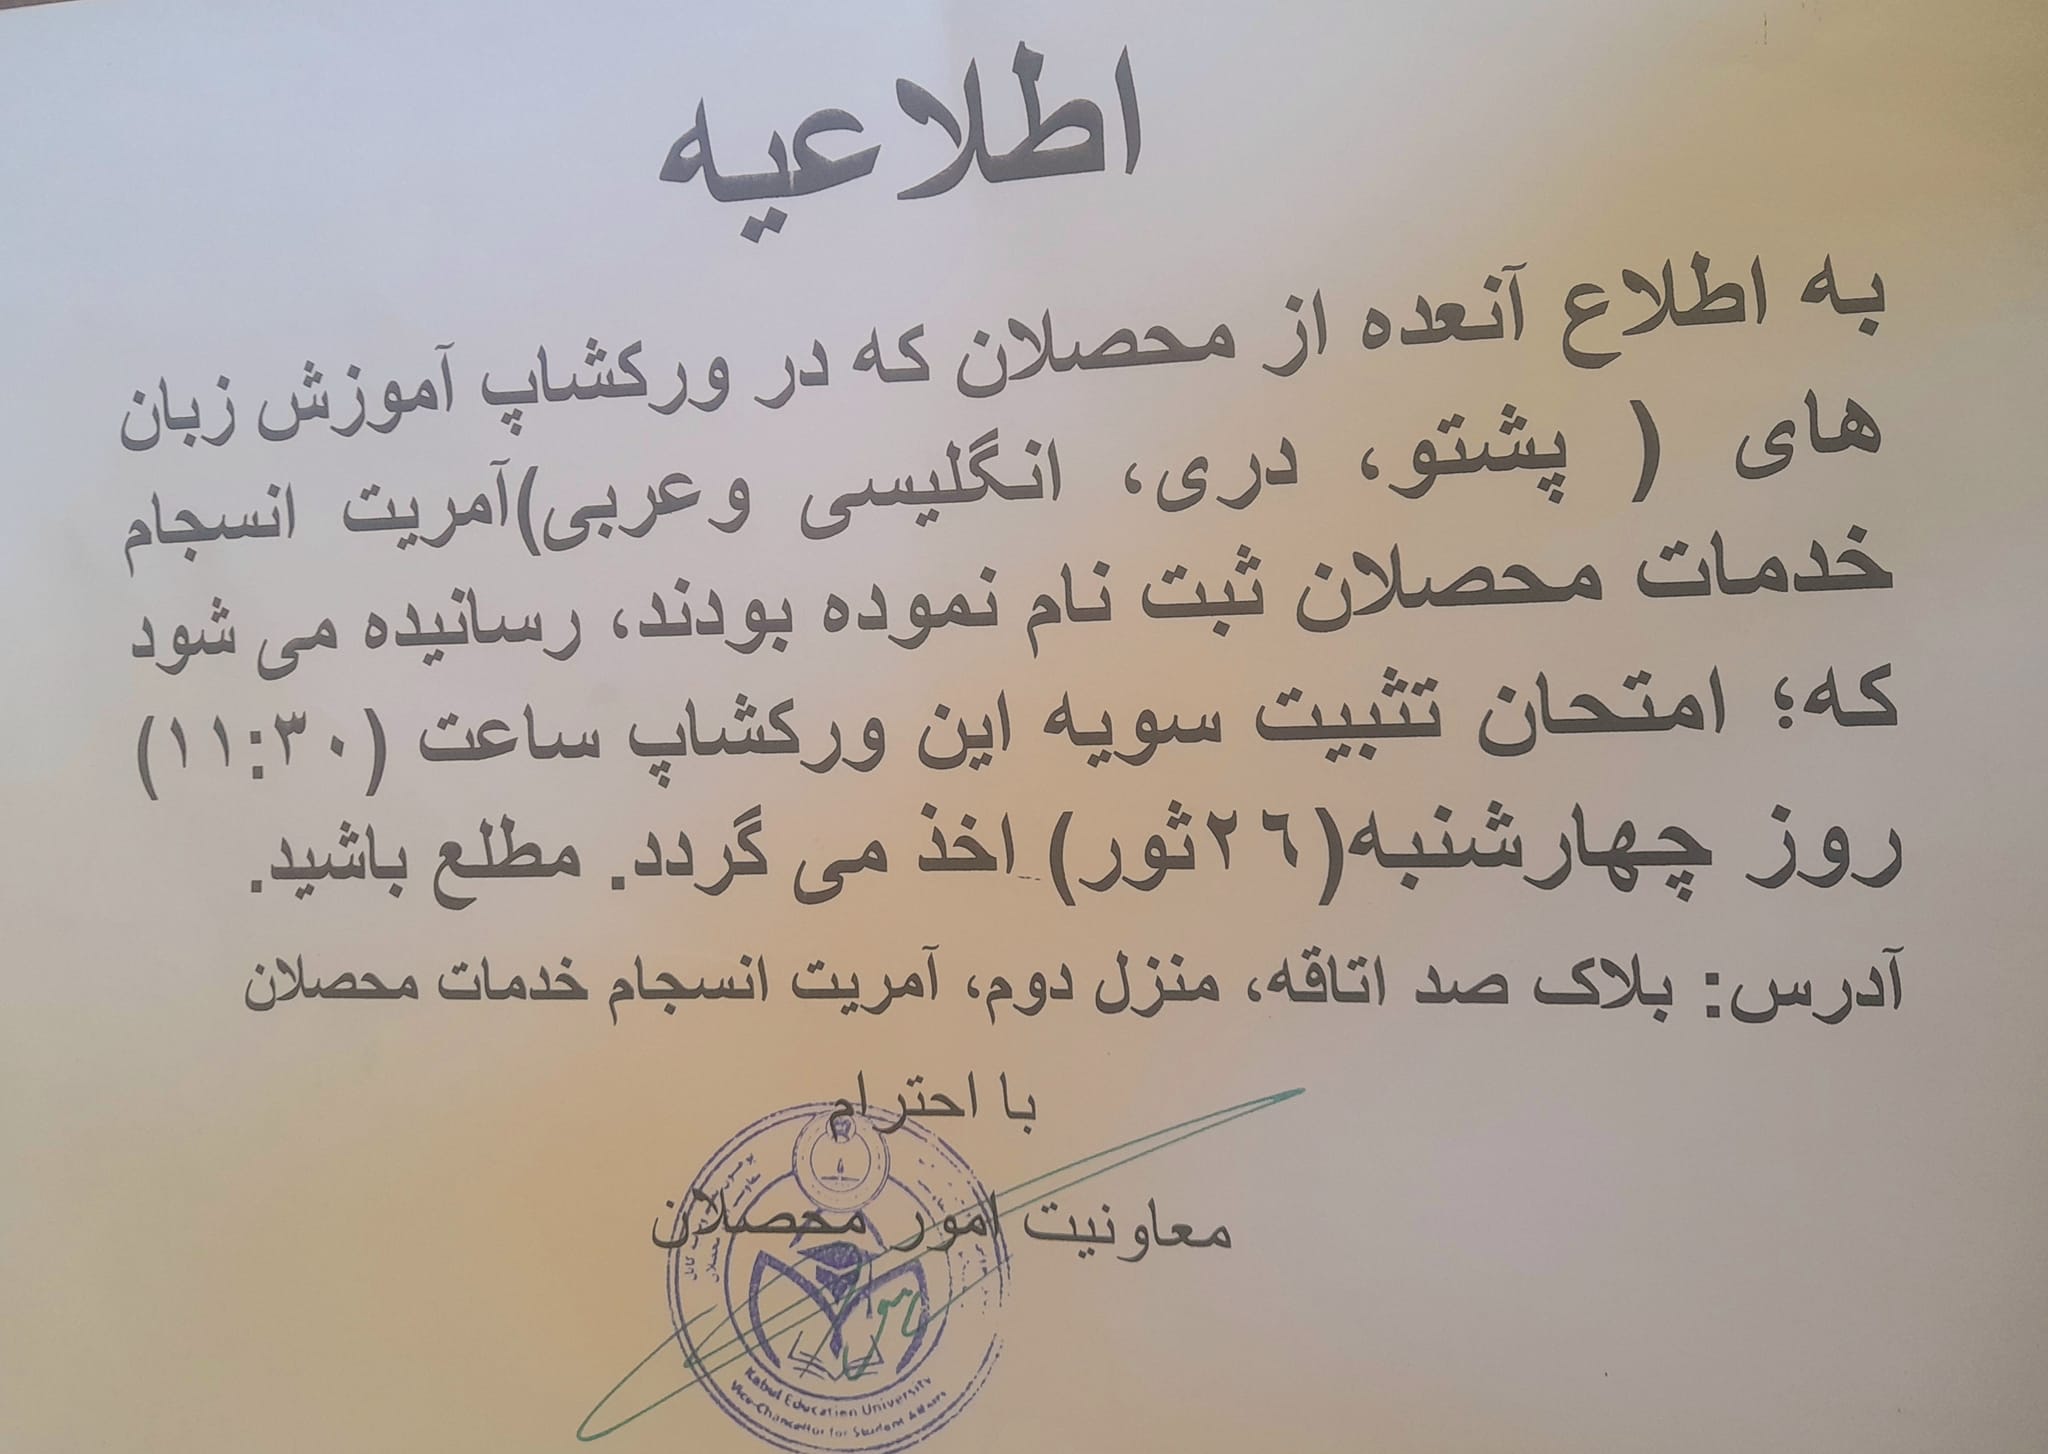 اطلاعیه
به اطلاع آنعده از محصلان که در ورکشاپ آموزش زبان
های ( پشتو، دری، انگلیسی وعربی)آمریت انسجام
خدمات محصلان ثبت نام نموده بودند، رسانیده می شود
که؛ امتحان تثبیت سویه این ورکشاپ ساعت (۱۱:۳۰)
روز چهارشنبه(۲۶ثور) اخذ می گردد. مطلع باشید.
آدرس: بلاک صد اتاقه، منزل دوم، آمریت انسجام خدمات محصلان
با احترام
معاونیت امور محصلان
Kabul Education University
Vice-Chancellor for Student Affairs